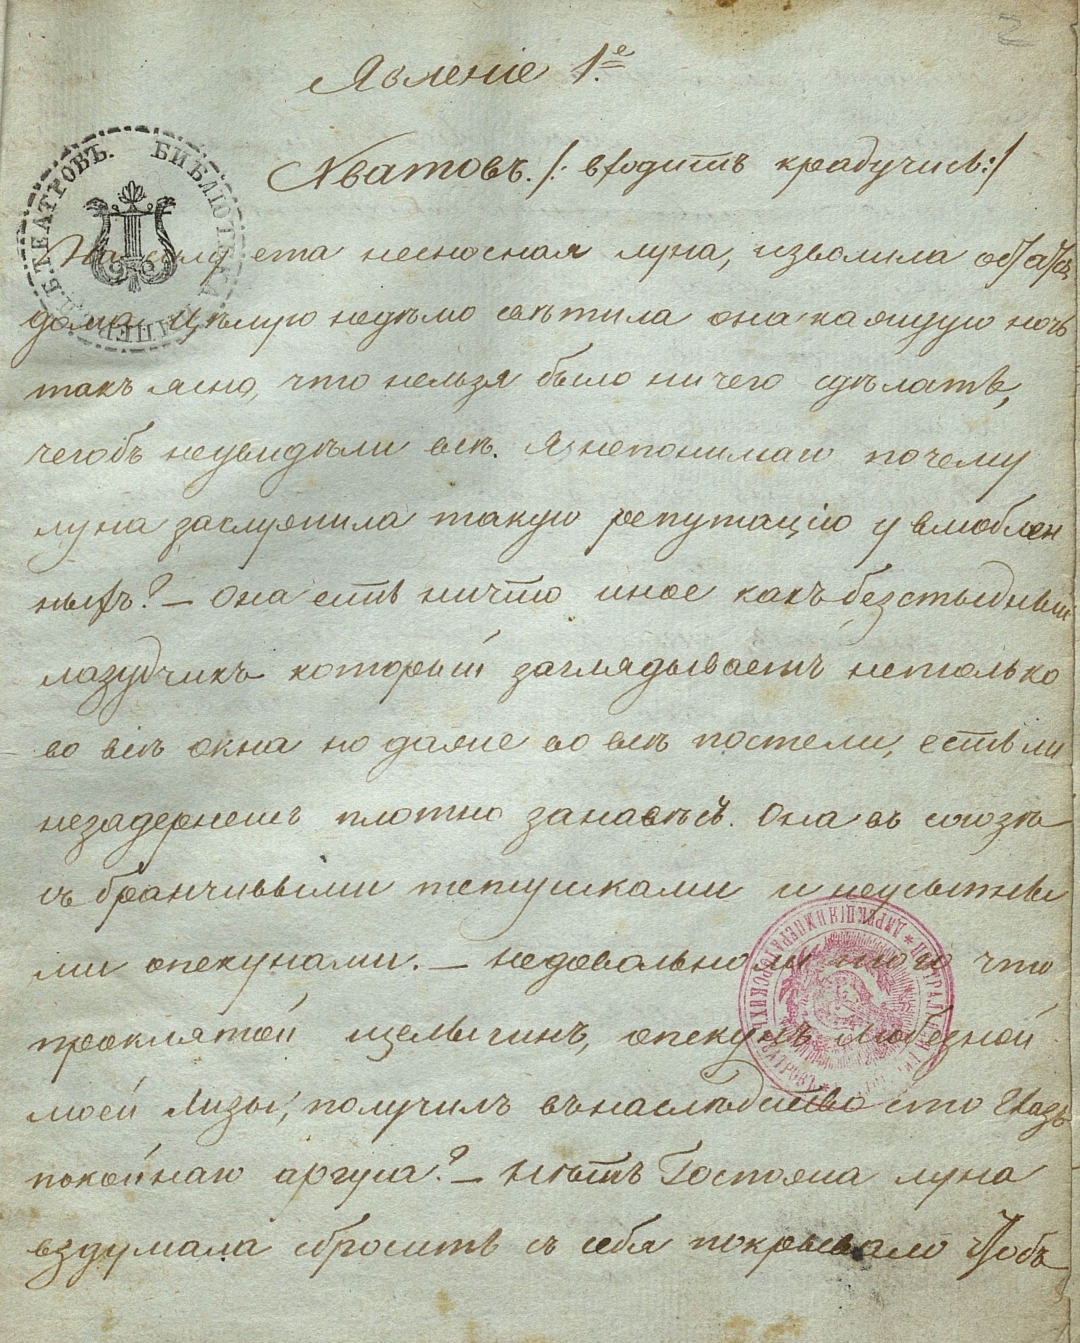 2
Явленіе 1.е
Хватовъ. /: входитъ крадучись :/
На силу ета несносная луна, изволила
дома. Цѣлую недѣлю свѣтила она каждую ночь
такъ ясно, что нельзя было ничего сдѣлать,
чегобъ неувидѣли всѣ. Я непонимаю почему
луна заслужила такую репутацію у влюблен
ныхъ? — Она есть ничто иное какъ безстыдный
лазутчикъ который заглядываетъ нетолько
во всѣ окна но даже во всѣ постели, естьли
незадернешь плотно занавѣсъ. Она въ союзѣ
съ бранчивыми тетушками и неусыпны
ми опекунами. — Недовольно и того что
проклятой Щелычинъ, опекунъ любезной
моей Лизы, получилъ внаслѣдство сто глазъ
покойнаго аргуса? — Нѣтъ Госпожа луна
вздумала сбросить съ себя покрывало чтобъ
БИБЛІОТЕКА ИМПЕР. С.П.Б. ТЕАТРОВЪ.